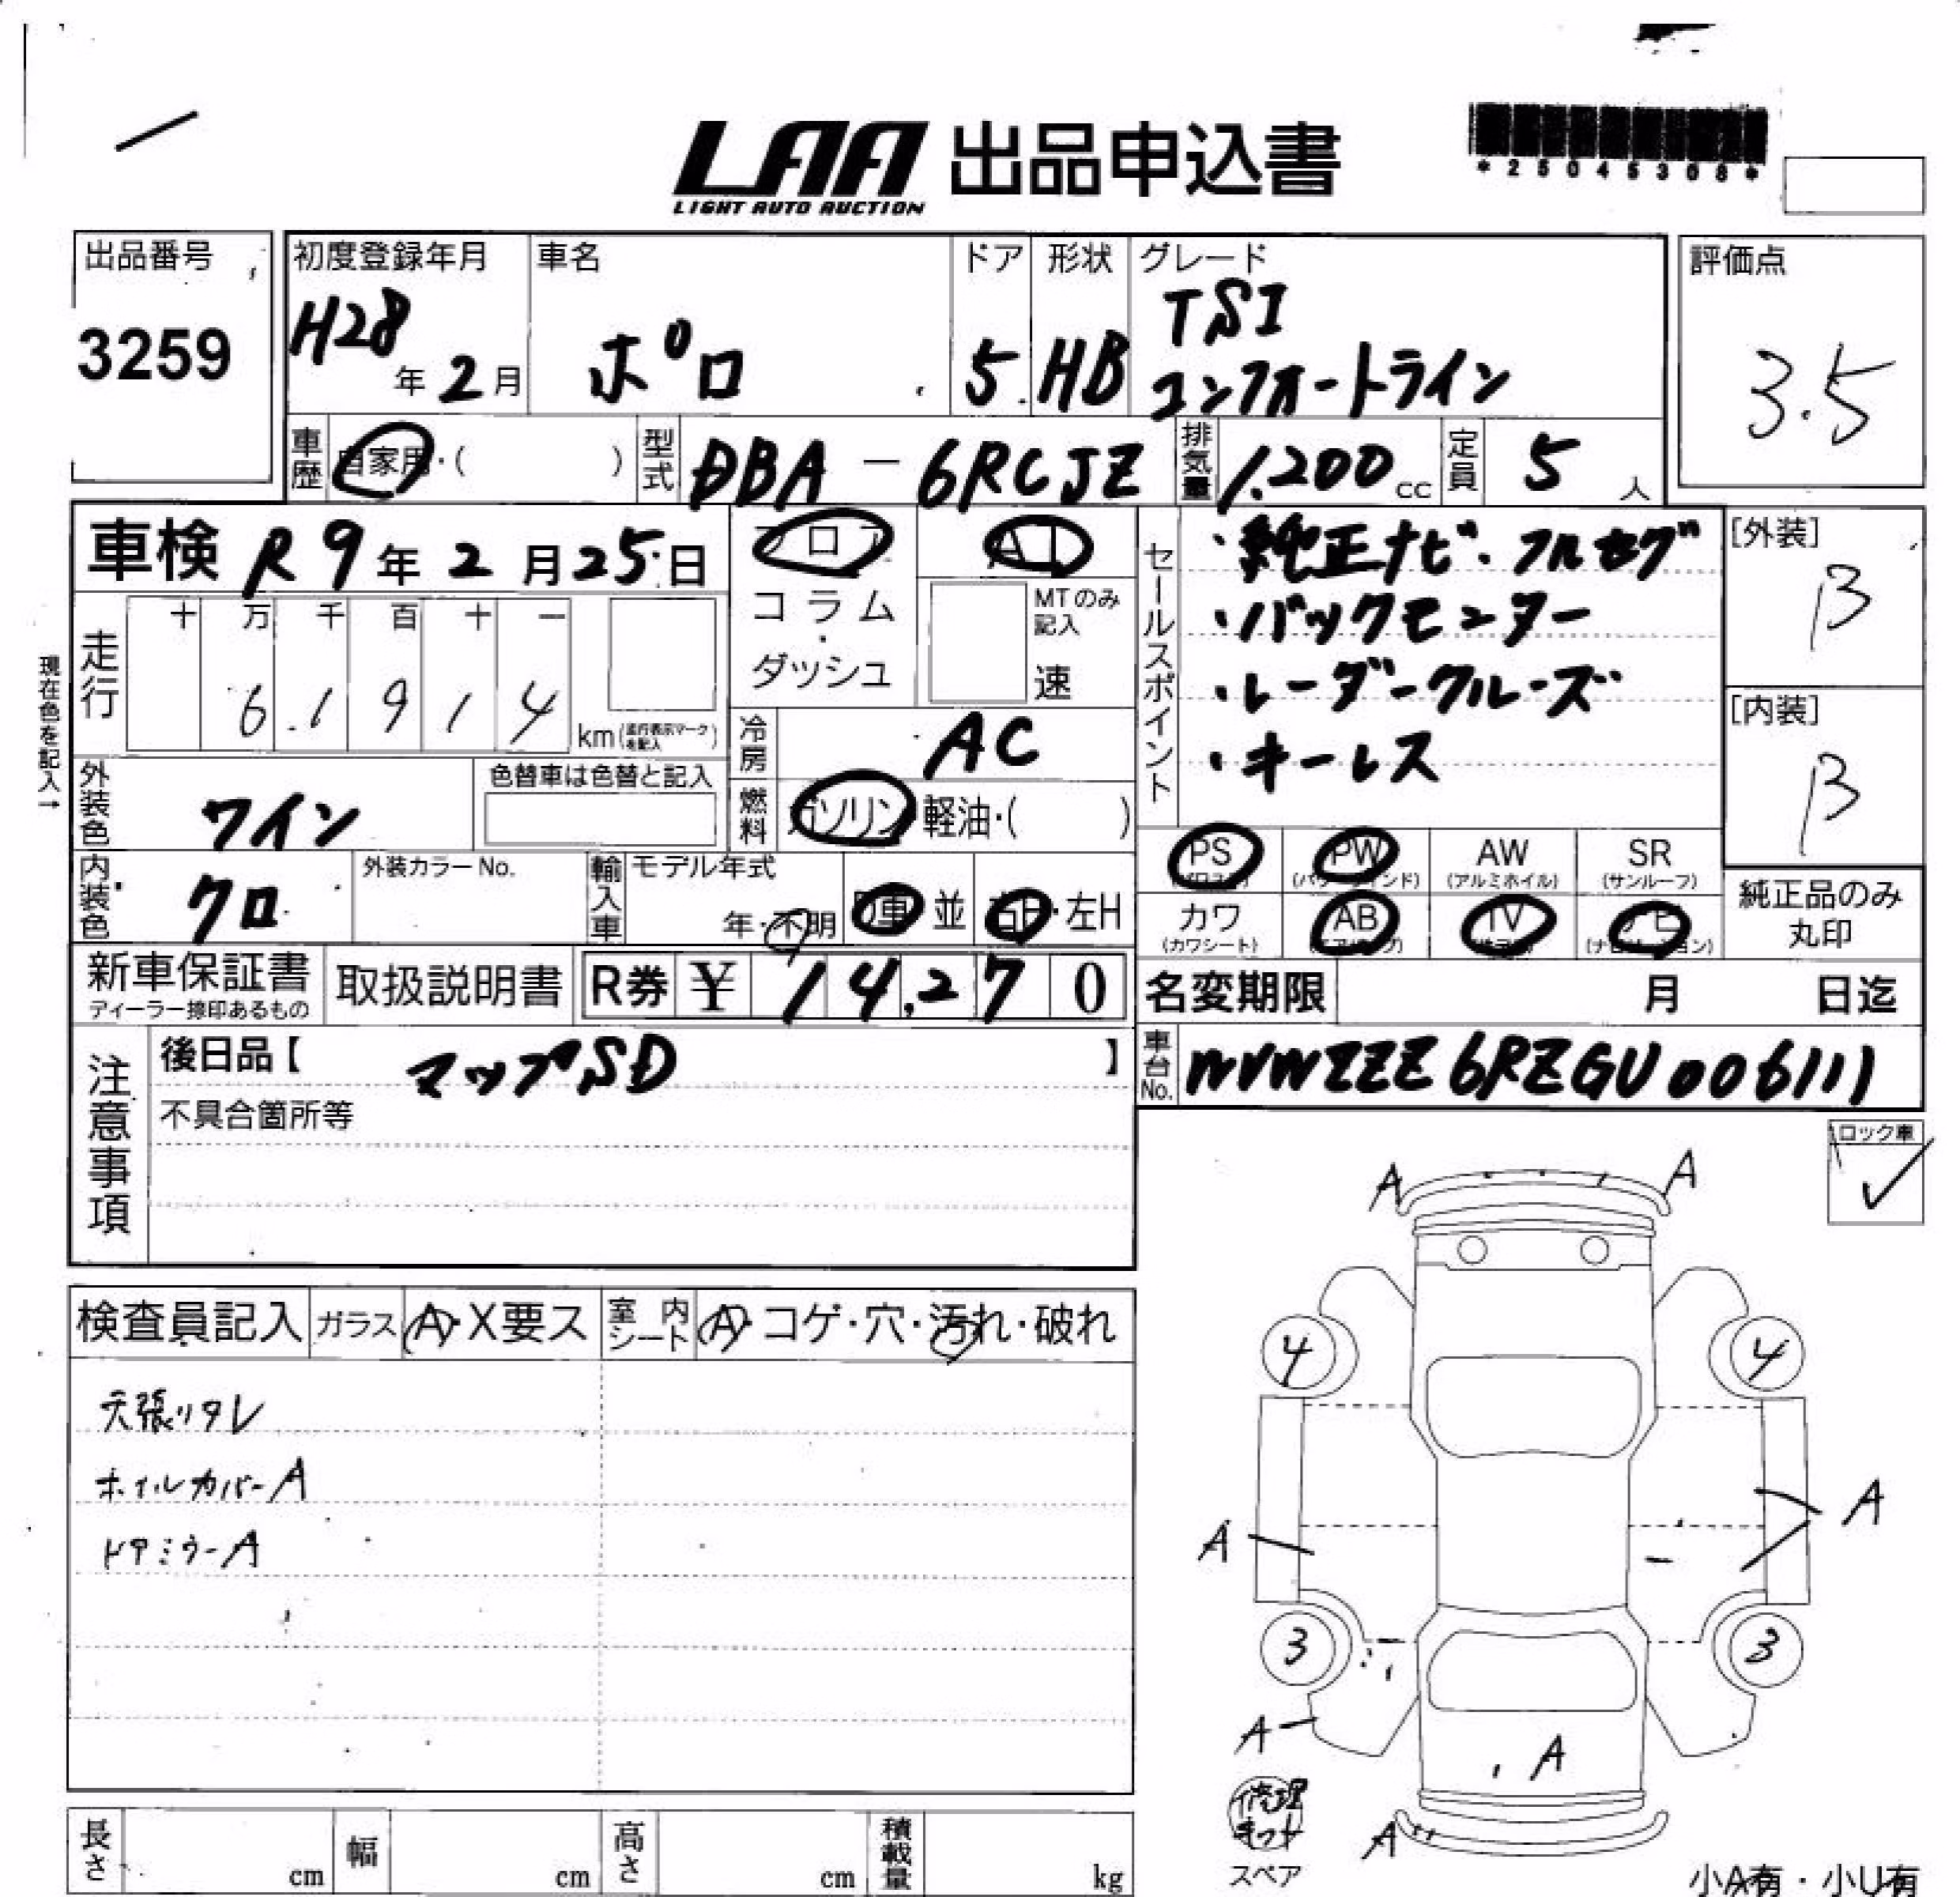 LAA 出品申込書
LIGHT AUTO AUCTION
*25045308*
出品番号
3259
初度登録年月
H28年2月
車名
ポロ
ドア
5
形状
HB
グレード
TSI
コンフォートライン
評価点
3.5
車歴 自家用・( )
型式 DBA-6RCJZ
排気量 1.200cc
定員 5人
車検 R9年2月25日
フロア
コラム・ダッシュ
AT
MTのみ記入
速
走行
十 万 千 百 十 一
6.1914 km(走行表示マークを記入)
現在色を記入→
冷房 AC
外装色 ワイン
色替車は色替と記入
燃料 ガソリン・軽油・( )
内装色 クロ
外装カラーNo.
輸入車
モデル年式
年・不明
D車・並
右H・左H
セールスポイント
・純正ナビ・フルセグ
・バックモニター
・レーダークルーズ
・キーレス
[外装]
B
[内装]
B
PS PW AW SR
(パワステ) (パワーウインド) (アルミホイル) (サンルーフ)
カワ AB TV ナビ
(カワシート) (エアバッグ) (ナビゲーション)
純正品のみ
丸印
新車保証書
ディーラー捺印あるもの
取扱説明書
R券 ¥ 14,270
名変期限 月 日迄
車台No. WVWZZZ6RZGU006111
注意事項
後日品【 マップSD 】
不具合箇所等
ロック車
✓
検査員記入
ガラス A・X要ス
室内シート A・コゲ・穴・汚れ・破れ
天張リタレ
ホイルカバーA
ドアミラーA
A A
4 4
A A
3 3
A
A
A
修理キット
スペア
小A有・小U有
長さ cm
幅 cm
高さ cm
積載量 kg